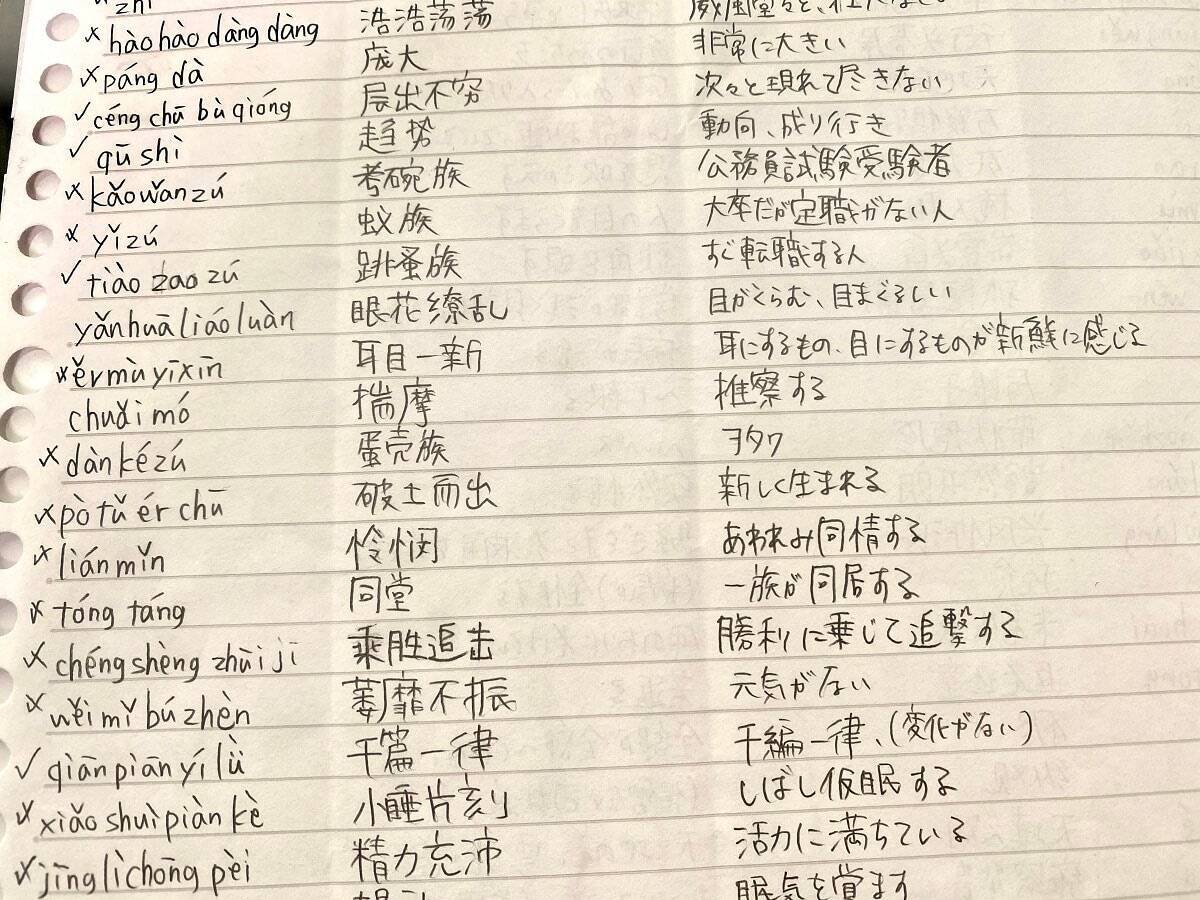 zhì
×hàohào dàngdàng 浩浩荡荡
×páng dà 庞大 非常に大きい
✓céng chū bù qióng 层出不穷 次々と現れて尽きない
✓qū shì 趋势 動向、成り行き
×kǎowǎnzú 考碗族 公務員試験受験者
×yǐzú 蚁族 大卒だが定職がない人
✓tiào zao zú 跳蚤族 すぐ転職する人
yǎnhuāliáoluàn 眼花缭乱 目がくらむ、目まぐるしい
×ěrmùyīxīn 耳目一新 耳にするもの、目にするものが新鮮に感じる
chuǎi mó 揣摩 推察する
×dànkézú 蛋壳族 ヲタク
×pò tǔ ér chū 破土而出 新しく生まれる
×liánmǐn 怜悯 あわれみ同情する
×tóng táng 同堂 一族が同居する
×chéngshèng zhuījī 乘胜追击 勝利に乗じて追撃する
×wěimǐbúzhèn 萎靡不振 元気がない
✓qiānpiānyílǜ 千篇一律 千編一律、(変化がない)
×xiǎoshuìpiànkè 小睡片刻 しばし仮眠する
×jīnglìchōngpèi 精力充沛 活力に満ちている
眠気を覚ます